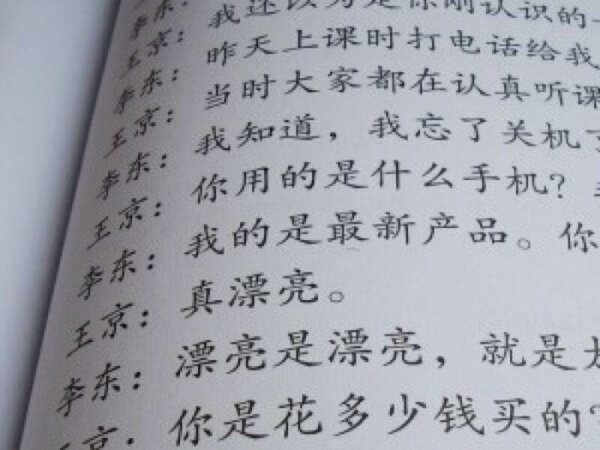 李东：
王京：我还以为是你刚认识的
李东：昨天上课时打电话给我
王京：当时大家都在认真听课
李东：我知道，我忘了关机了
王京：你用的是什么手机？
李东：我的是最新产品。你
王京：真漂亮。
李东：漂亮是漂亮，就是
王京：你是花多少钱买的？